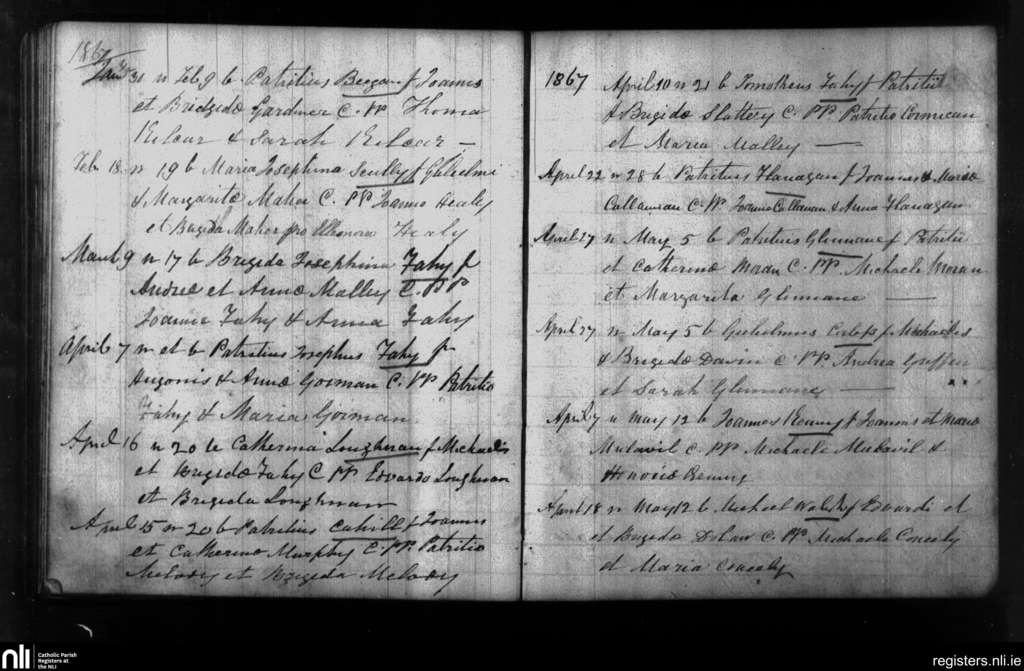 1867
Jany 31 n Feb 9 b Patritius Brogan f Joannis
et Bridgidæ Gardner C. PP Thoma
Kilcar & Sarah Kilcar —
Feb 18 n 19 b Maria Josephina Scully f Gulielmi
& Margaritæ Maher C. PP Joanne Healy
et Brigida Maher pro Healy
March 9 n 17 b Brigida Josephina Fahy f
Andreæ et Annæ Malley C. PP
Joanne Fahy & Anna Fahy
April 7 n et b Patritius Josephus Fahy f
Hugonis & Annæ Gorman C. PP Patritio
Fahy & Maria Gorman
April 16 n 20 b Catherina Loughnan f Michaelis
et Brigidæ Fahy C PP Edvardo Loughnan
et Brigida Loughnan
April 15 n 20 b Patritius Cahill f Joannis
et Catherinæ Murphy C. PP. Patritio
Melody et Brigida Melody
1867
April 10 n 21 b Timotheus Fahy f Patritii
& Brigidæ Slattery C. PP. Patritio Cormican
et Maria Malley —
April 22 n 28 b Patritius Flanagan f Joannis & Mariæ
Callanan C. PP. Joanne Callanan & Anna Flanagan
April 27 n May 5 b Patritius Glennane f Patritii
et Catherinæ Moran C. PP. Michaele Moran
et Margarita Glennane —
April 27 n May 5 b Gulielmus f Michaelis
& Brigidæ Davin C PP. Andrea Griffin
et Sarah Glennane —
April 7 n May 12 b Joannes f Joannis et Mariæ
Mulavil C. PP Michaele Mulavil &
April 18 n May 12 b Michael Walsh f Edvardi et
et Brigidæ Dolan C. PP. Michaele Conealy
et Maria Conealy
nli
Catholic Parish
Registers at
the NLI
registers.nli.ie